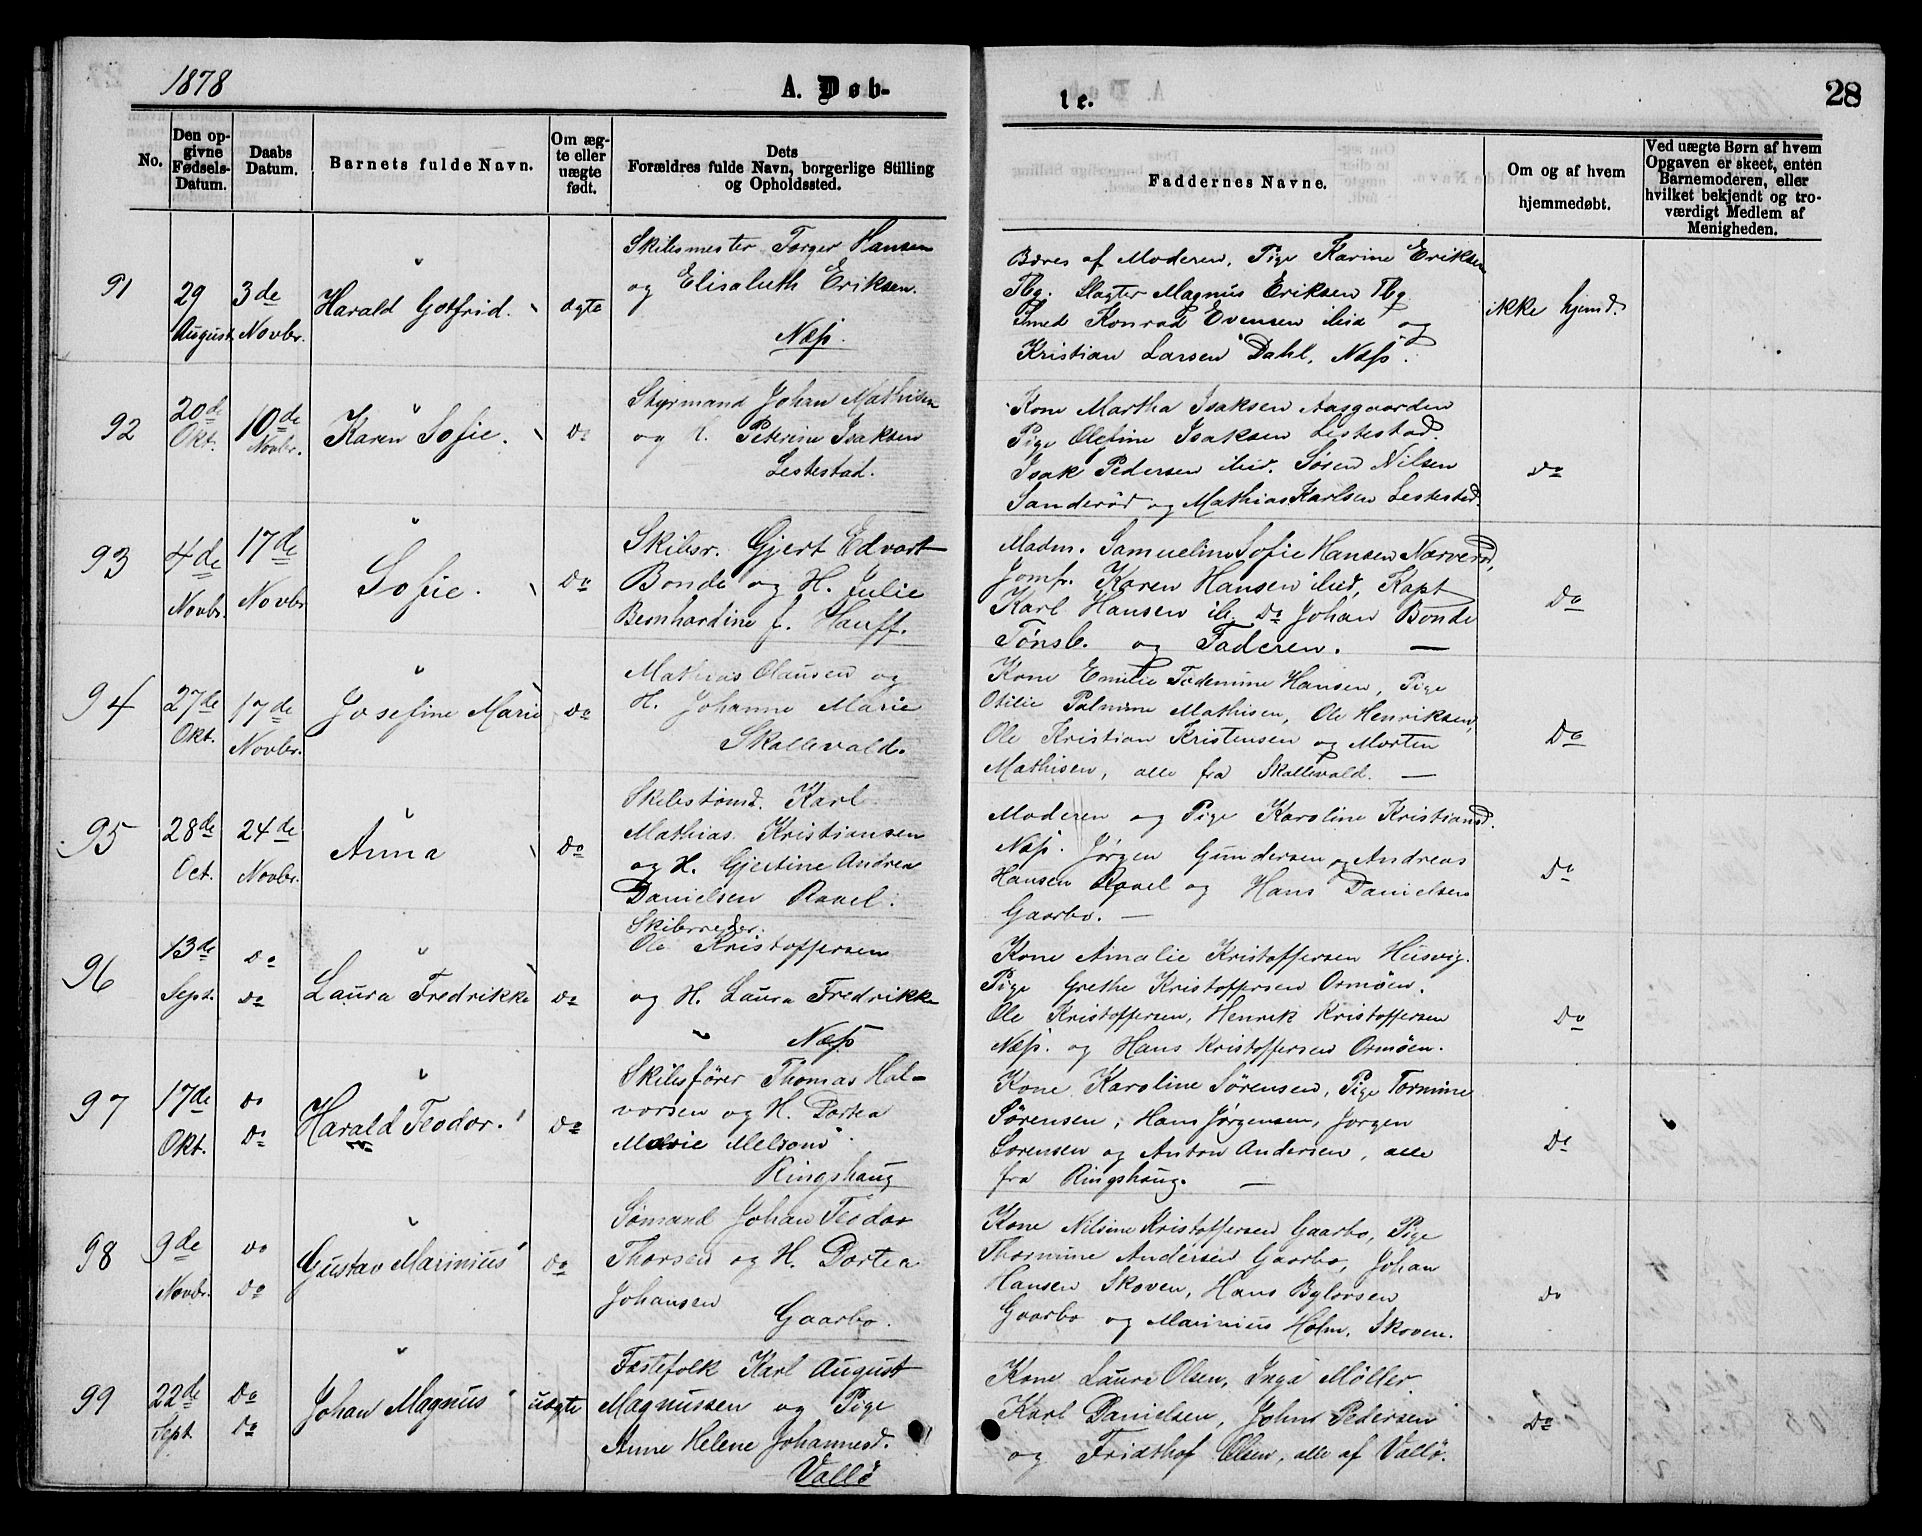 1878
A. Døb-
1 e.
28
No.
Den op-
givne
Fødsels-
Datum.
Daabs
Datum.
Barnets fulde Navn.
Om æg-
te eller
uægte
født.
Dets
Forældres fulde Navn, borgerlige Stilling
og Opholdssted.
Faddernes Navne.
Om og af hvem
hjemmedøbt.
Ved uægte Børn af hvem
Opgaven er skeet, enten
Barnemoderen, eller
hvilket bekjendt og tro-
værdigt Medlem af
Menigheden.
91
29
August
3de
Novbr.
Harald Gotfrid.
ægte
Skibsmester Torger Hansen
og Elisabeth Eriksen.
Næss.
Bæres af Moderen, Pige Karine Eriksen
Tbg. Slagter Magnus Eriksen Tbg.
Smed Konrad Evensen ibid og
Kristian Larsen Dahl, Næss.
ikke hjemd.
92
20de
Okt.
10de
Novbr.
Karen Sofie.
Do
Styrmand Johan Mathisen
og Peterine Isaksen
Lestestad.
Kone Martha Isaksen Aasgaarden
Pige Olefine Isaksen Lestestad.
Isak Pedersen ibid. Søren Nilsen
Sanderød og Mathias Karlsen Lestestad.
Do
93
4de
Novbr.
17de
Novbr
Sofie.
Do
Skibsr. Gjert Edvart
Bonde og H. Julie
Bernhardine f. Hauff.
Madm. Samueline Sofie Hansen Narverød,
Jomfr. Karen Hansen ibid, Kapt
Karl Hansen ib. Do Johan Bonde
Tønsb. og Faderen. —
Do
94
27de
Okt.
17de
Novbr.
Josefine Marie
Do
Mathias Olausen og
H. Johanne Marie
Skallevald.
Kone Emilie Hansen, Pige
Otilie Palmine Mathisen, Ole Henriksen,
Ole Kristian Kristensen og Morten
Mathisen, alle fra Skallevald. —
Do
95
28de
Oct.
24de
Novbr.
Anna
Do
Skibstømd. Karl
Mathias Kristiansen
og H. Gjertine Andrea
Danielsen Raael.
Moderen og Pige Karoline Kristiansd.
Næss. Jørgen Gundersen og Andreas
Hansen Raael og Hans Danielsen
Gaarbo. —
Do
96
13de
Sept.
Do
Do
Laura Fredrikke
Do
Skibsreder.
Ole Kristoffersen
og H. Laura Fredrikke
Næss
Kone Amalie Kristoffersen Husvig.
Pige Grethe Kristoffersen Ormøen.
Ole Kristoffersen, Henrik Kristoffersen
Næss. og Hans Kristoffersen Ormøen.
Do
97
17de
Okt.
Do
Do
Harald Teodor.
Do
Skibsfører Thomas Hal-
vorsen og H. Dortea
Marie Melsom
Ringshaug
Kone Karoline Sørensen, Pige Tormine
Sørensen, Hans Jørgensen, Jørgen
Sørensen og Anton Andersen, alle
fra Ringshaug. —
Do
98
9de
Novbr.
Do
Do
Gustav Marinius
Do
Sømand Johan Teodor
Thorsen og H. Dortea
Johansen
Gaarbo.
Kone Nilsine Kristoffersen Gaarbo, Pige
Thormine Andersen Gaarbo, Johan
Hansen Skoven, Hans
Gaarbo og Marinius Holm, Skoven.
Do
99
22de
Sept
Do
Do
Johan Magnus
uægte
Fæstefolk Karl August
Magnussen og Pige
Anne Helene Johannesd.
Vallö
Kone Laura Olsen, Inga Møller
Karl Danielsen, Johns Pedersen
og Fridthof Olsen, alle af Vallö.
Do